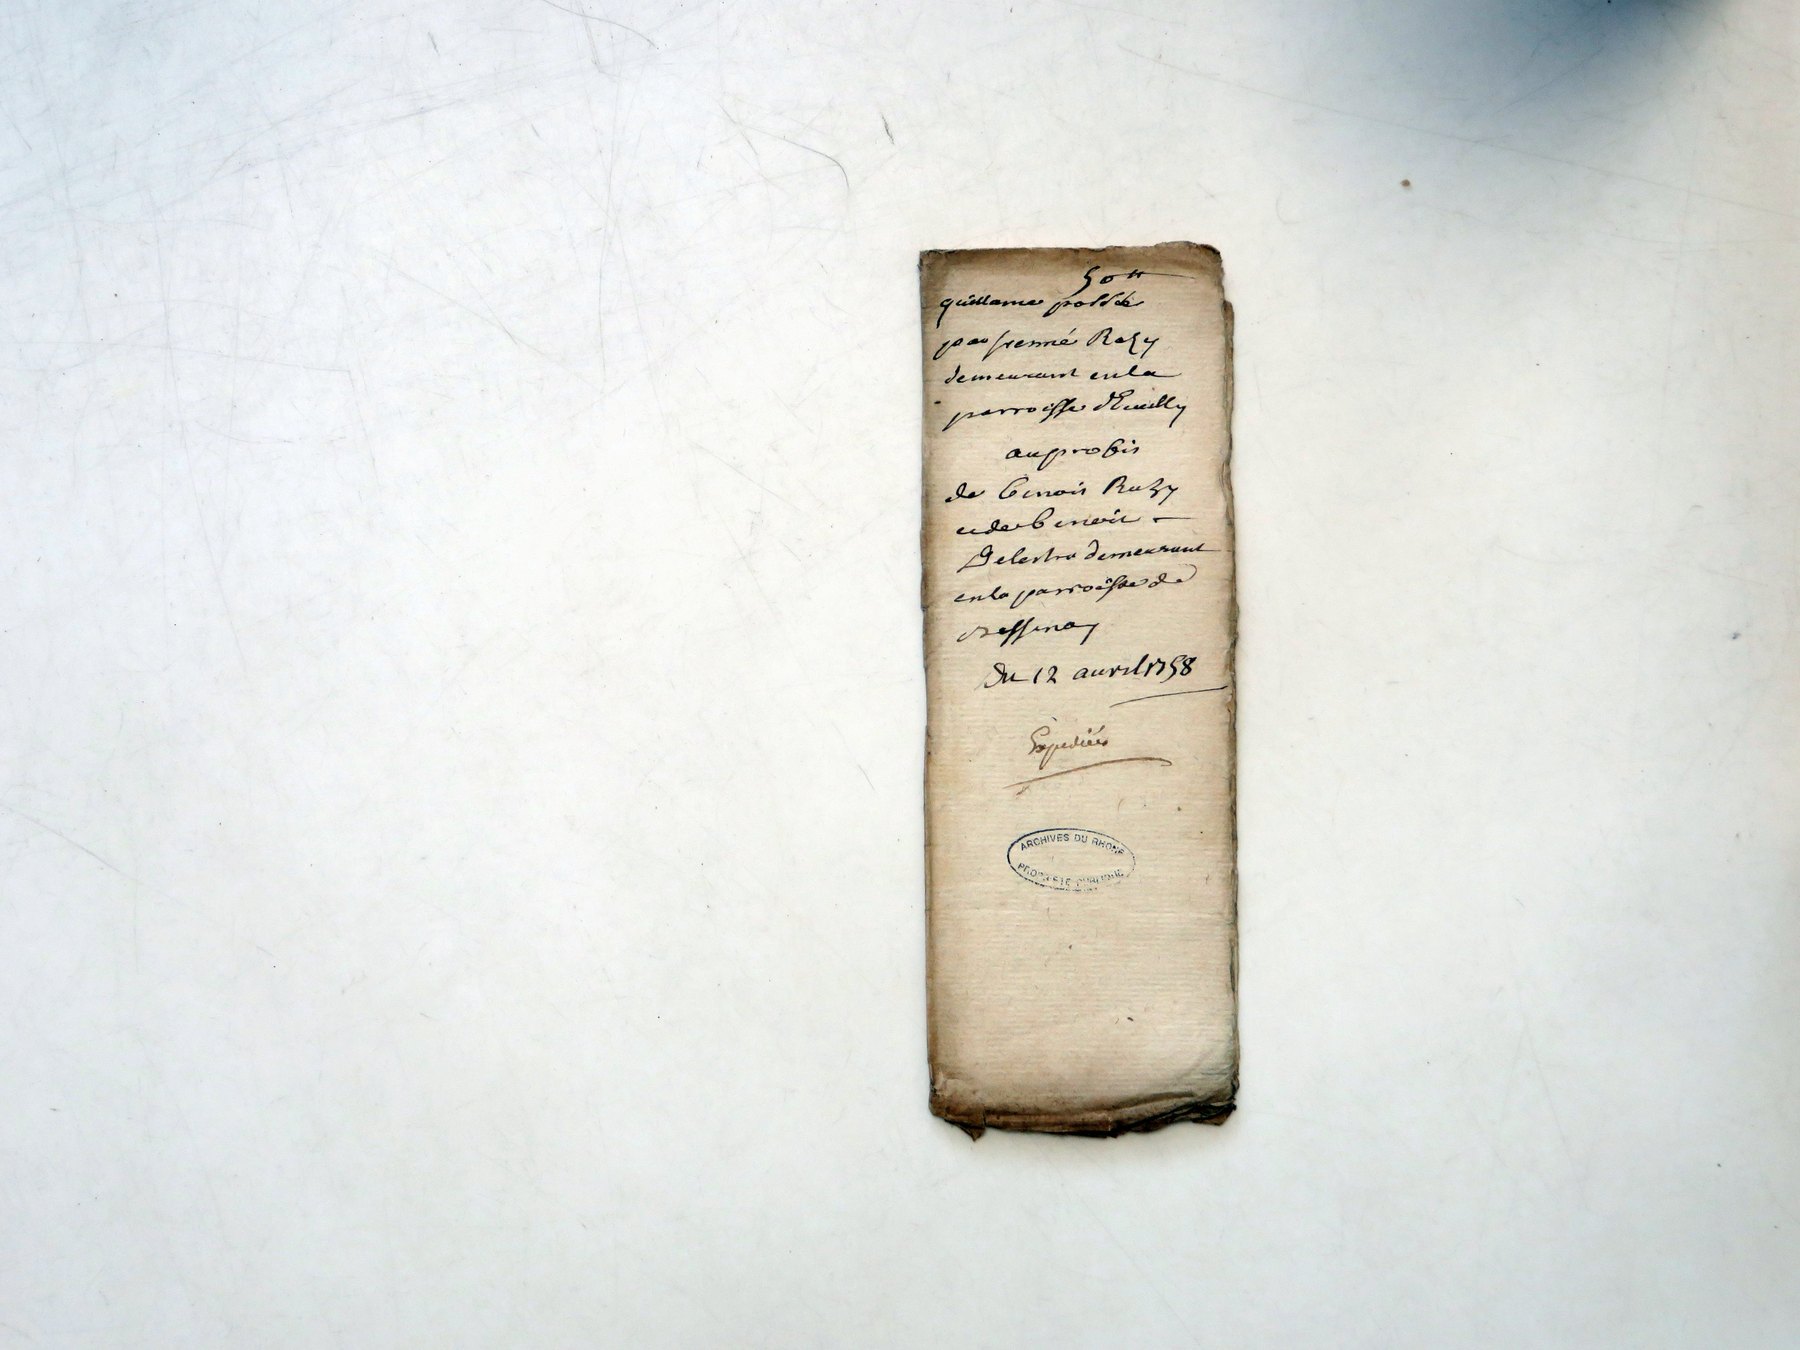 50 tt
quittance passée
par pierre Razy
demeurant en la
parroisse d'Eveilly
au profit
de benoit Razy
et de benoit -
Delestra demeurant
en la parroisse de
Bessenay
du 12 avril 1758
Expediée
ARCHIVES DU RHONE
PROPRIETE PUBLIQUE